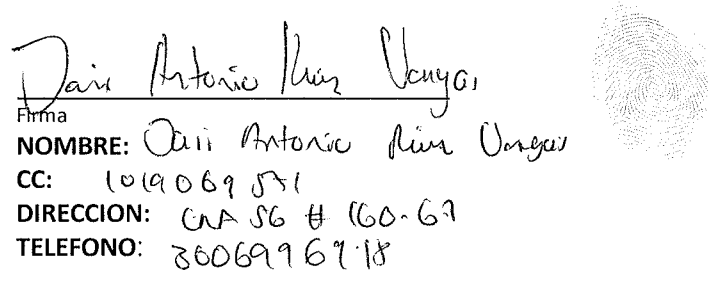 Antonio Vargas
Firma
NOMBRE: Antonio Vargas
CC: 1019069571
DIRECCION: CRA 56 # 160-67
TELEFONO: 3006996718